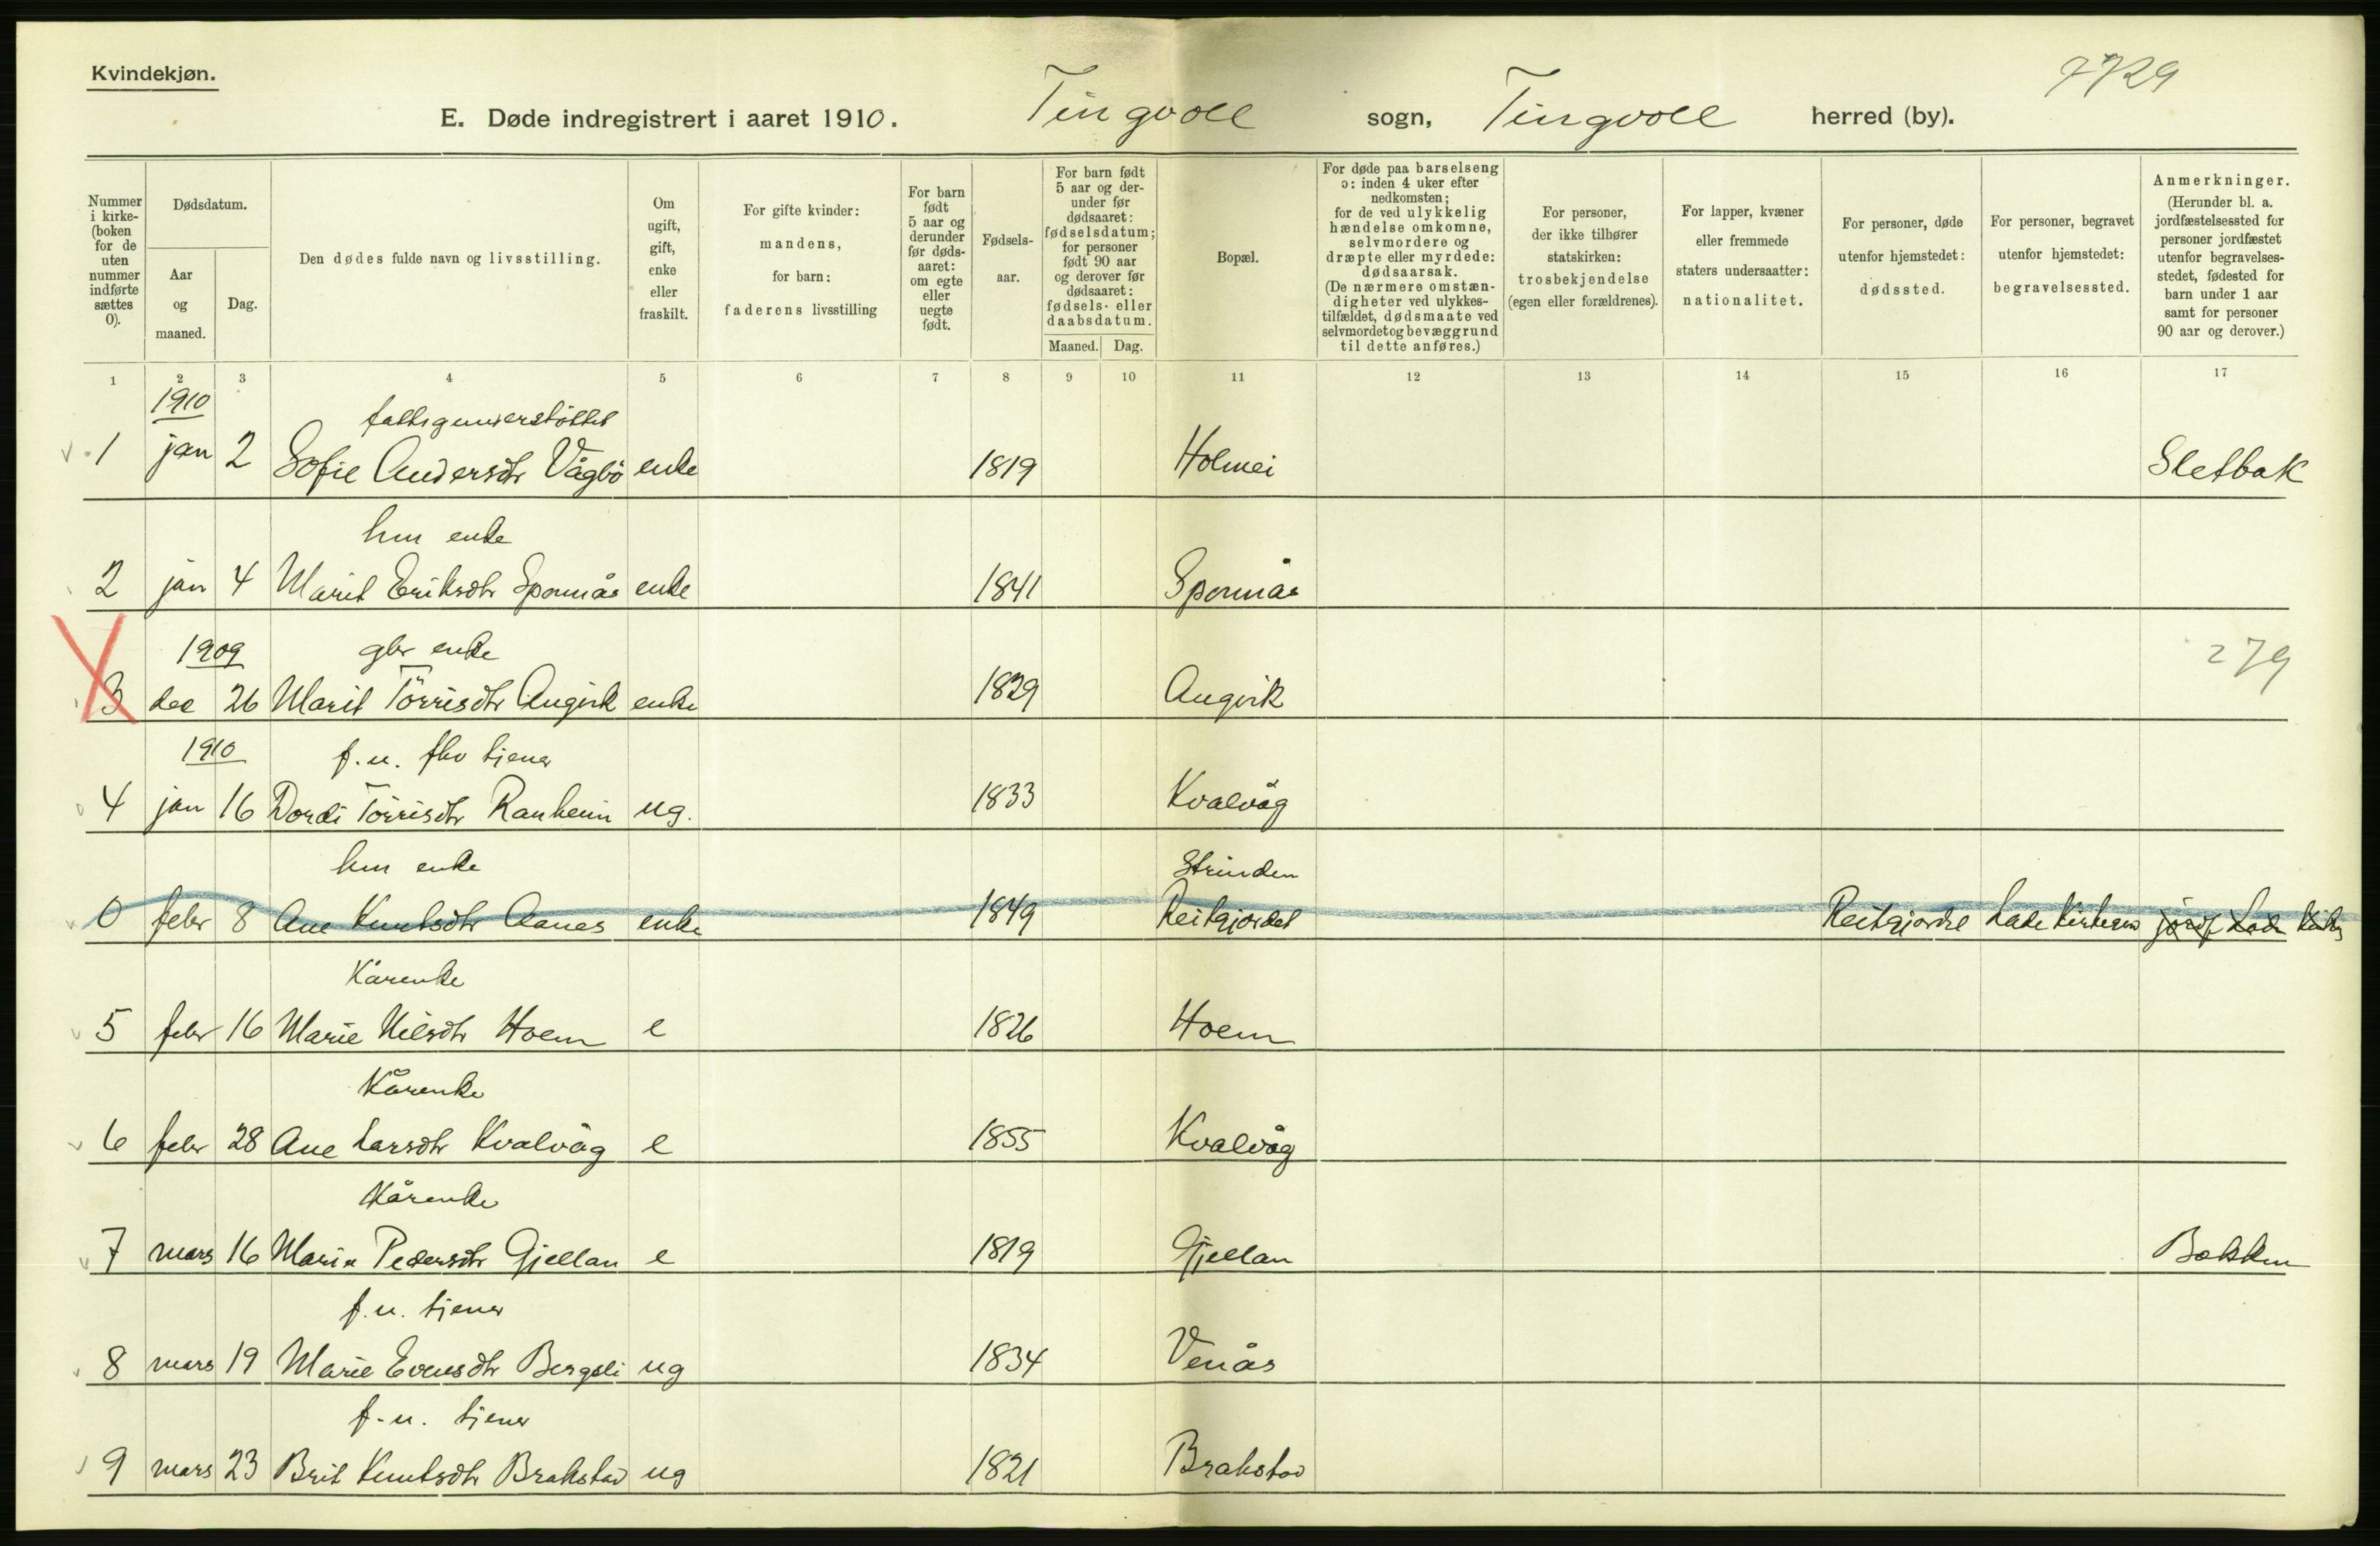 Kvindekjøn.
7729
E. Døde indregistrert i aaret 1910. Tingvoll sogn, Tingvoll herred (by).
Nummer i kirke- (boken for de uten nummer indførte sættes 0).
Dødsdatum.
Aar og maaned.
Dag.
Den dødes fulde navn og livsstilling.
Om ugift, gift, enke eller fraskilt.
For gifte kvinder: mandens, for barn: faderens livsstilling
For barn født 5 aar og derunder før døds- aaret: om egte eller uegte født.
Fødsels- aar.
For barn født 5 aar og der- under før dødsaaret: fødselsdatum; for personer født 90 aar og derover før dødsaaret: fødsels- eller daabsdatum.
Maaned. Dag.
Bopæl.
For døde paa barselseng ɔ: inden 4 uker efter nedkomsten; for de ved ulykkelig hændelse omkomne, selvmordere og dræpte eller myrdede: dødsaarsak. (De nærmere omstæn- digheter ved ulykkes- tilfældet, dødsmaate ved selvmordet og bevæggrund til dette anføres.)
For personer, der ikke tilhører statskirken: trosbekjendelse (egen eller forældrenes).
For lapper, kvæner eller fremmede staters undersaatter: nationalitet.
For personer, døde utenfor hjemstedet: dødssted.
For personer, begravet utenfor hjemstedet: begravelsessted.
Anmerkninger. (Herunder bl. a. jordfæstelsessted for personer jordfæstet utenfor begravelses- stedet, fødested for barn under 1 aar samt for personer 90 aar og derover.)
1 2 3 4 5 6 7 8 9 10 11 12 13 14 15 16 17
1910 fattigunderstöttet
1 jan 2 Sofie Andersdtr Vågbö enke 1819 Holmei Sletbak
hm enke
2 jan 4 Marit Eriksdtr Spornås enke 1841 Spornås
1909 gbr enke 279
3 dec 26 Marit Törrisdtr Angvik enke 1829 Angvik
1910 f.u. fhv tjener
4 jan 16 Dordi Törrisdtr Ranheim ug. 1833 Kvalvåg
hm enke Strinden
0 febr 8 Ane Knutsdtr Aanes enke 1849 Reitgjordet Reitgjordet Lade Kirkegård jordf Lade
Kårenke
5 febr 16 Marie Nilsdtr Hoem e 1826 Hoem
Kårenke
6 febr 28 Ane Larsdtr Kvalvåg e 1855 Kvalvåg
Kårenke
7 mars 16 Maria Pedersdtr Gjellan e 1819 Gjellan Bakken
f.u. tjener
8 mars 19 Marie Evensdtr Bergsli ug 1834 Venås
f.u. tjener
9 mars 23 Brit Knutsdtr Brakstad ug 1821 Brakstad